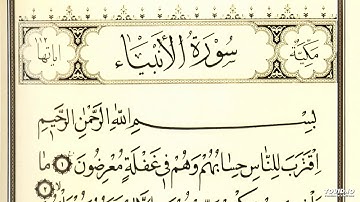 مكية
سورة الأنبياء
آياتها ١١٢
بِسْمِ اللَّهِ الرَّحْمَٰنِ الرَّحِيمِ
اقْتَرَبَ لِلنَّاسِ حِسَابُهُمْ وَهُمْ فِي غَفْلَةٍ مُعْرِضُونَ ١ مَا